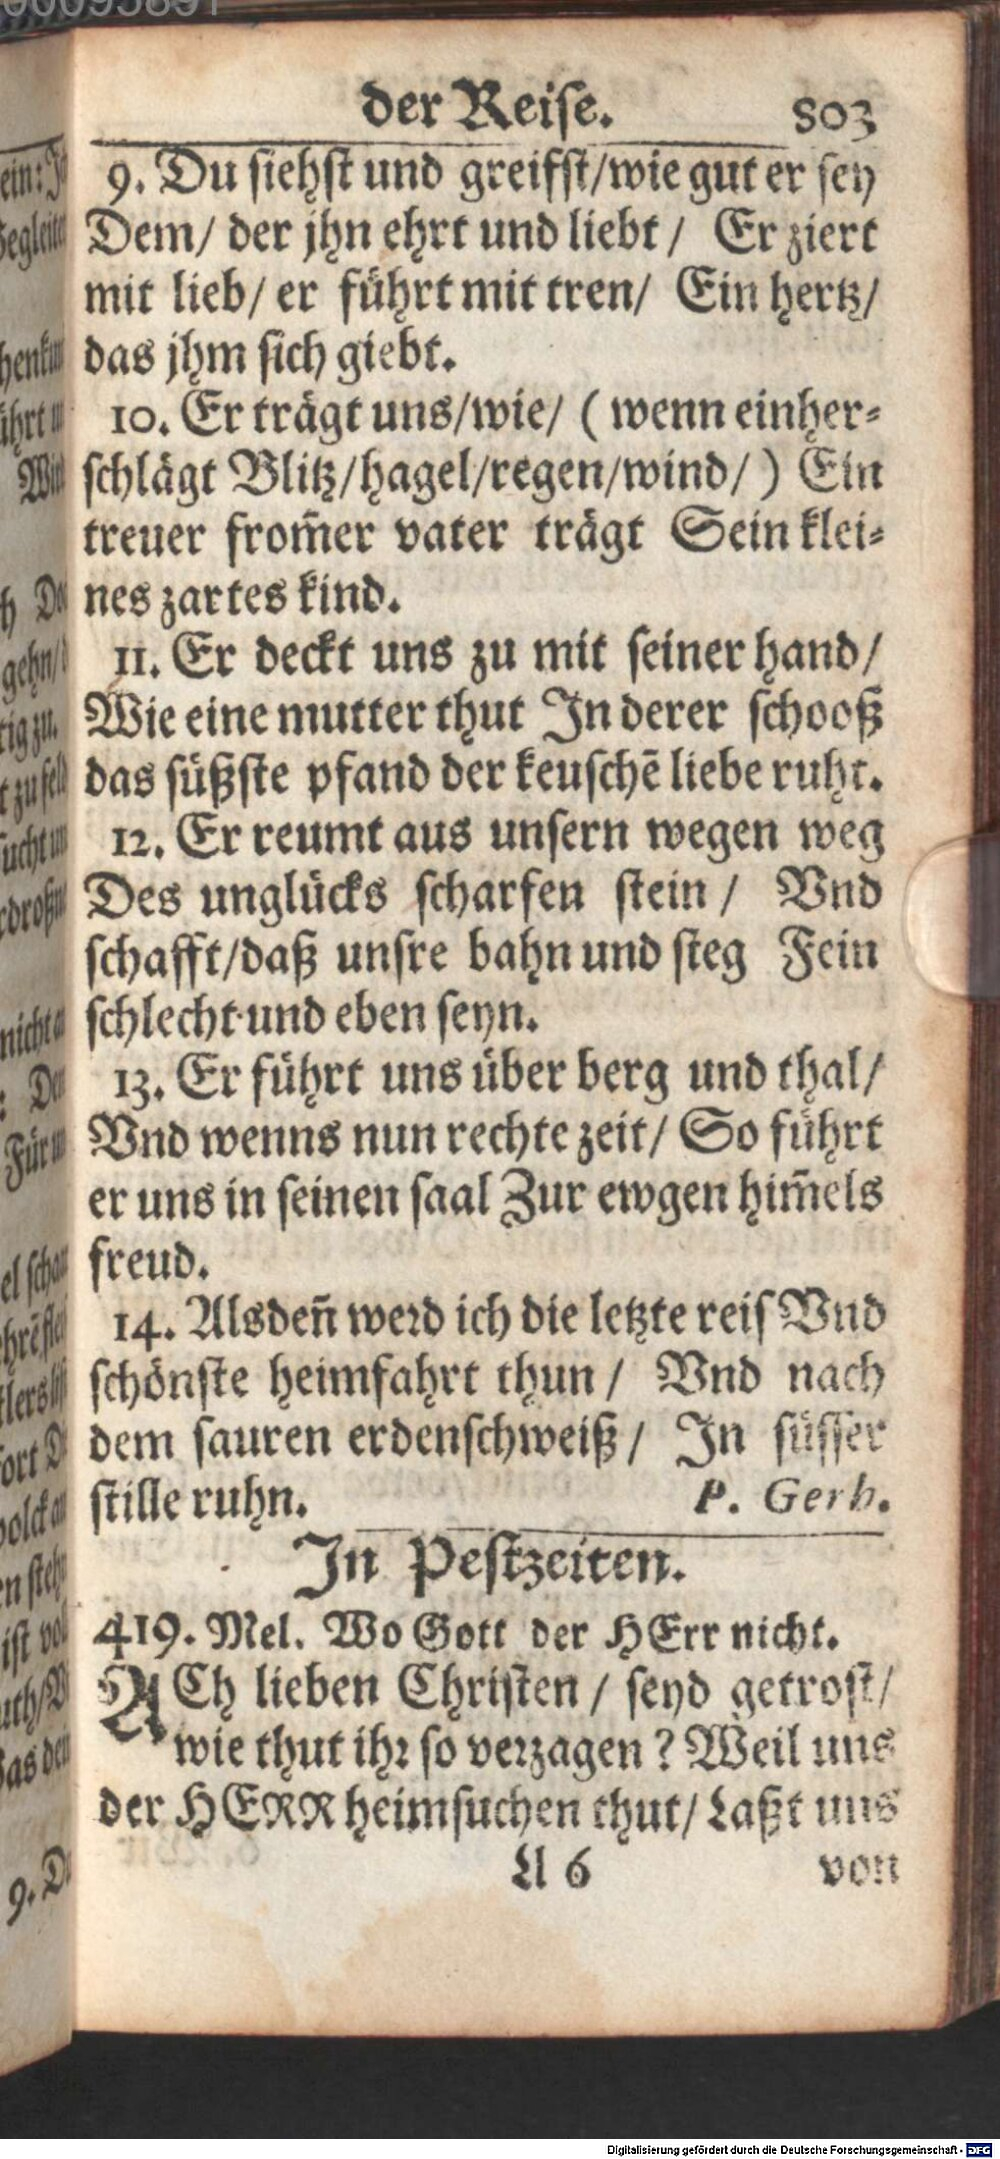 der Reise. 803
9. Du siehst und greifst/wie gut er sey
Dem/ der jhn ehrt und liebt/ Er ziert
mit lieb/ er führt mit tren/ Ein hertz/
das jhm sich giebt.
10. Er trägt uns/wie/ (wenn einher-
schlägt Blitz/hagel/regen/wind/) Ein
treuer from̃er vater trägt Sein klei-
nes zartes kind.
11. Er deckt uns zu mit seiner hand/
Wie eine mutter thut In derer schooß
das süßste pfand der keuschẽ liebe ruht.
12. Er reumt aus unsern wegen weg
Des unglücks scharfen stein/ Vnd
schafft/daß unsre bahn und steg Fein
schlecht und eben seyn.
13. Er führt uns über berg und thal/
Vnd wenns nun rechte zeit/ So führt
er uns in seinen saal Zur ewgen him̃els
freud.
14. Alsdeñ werd ich die letzte reis Vnd
schönste heimfahrt thun/ Vnd nach
dem sauren erdenschweiß/ In süsser
stille ruhn. P. Gerh.
In Pestzeiten.
419. Mel. Wo Gott der HErr nicht.
ACh lieben Christen/ seyd getrost/
wie thut ihr so verzagen? Weil uns
der HERR heimsuchen thut/ Laßt uns
Ll 6 von
Digitalisierung gefördert durch die Deutsche Forschungsgemeinschaft - DFG